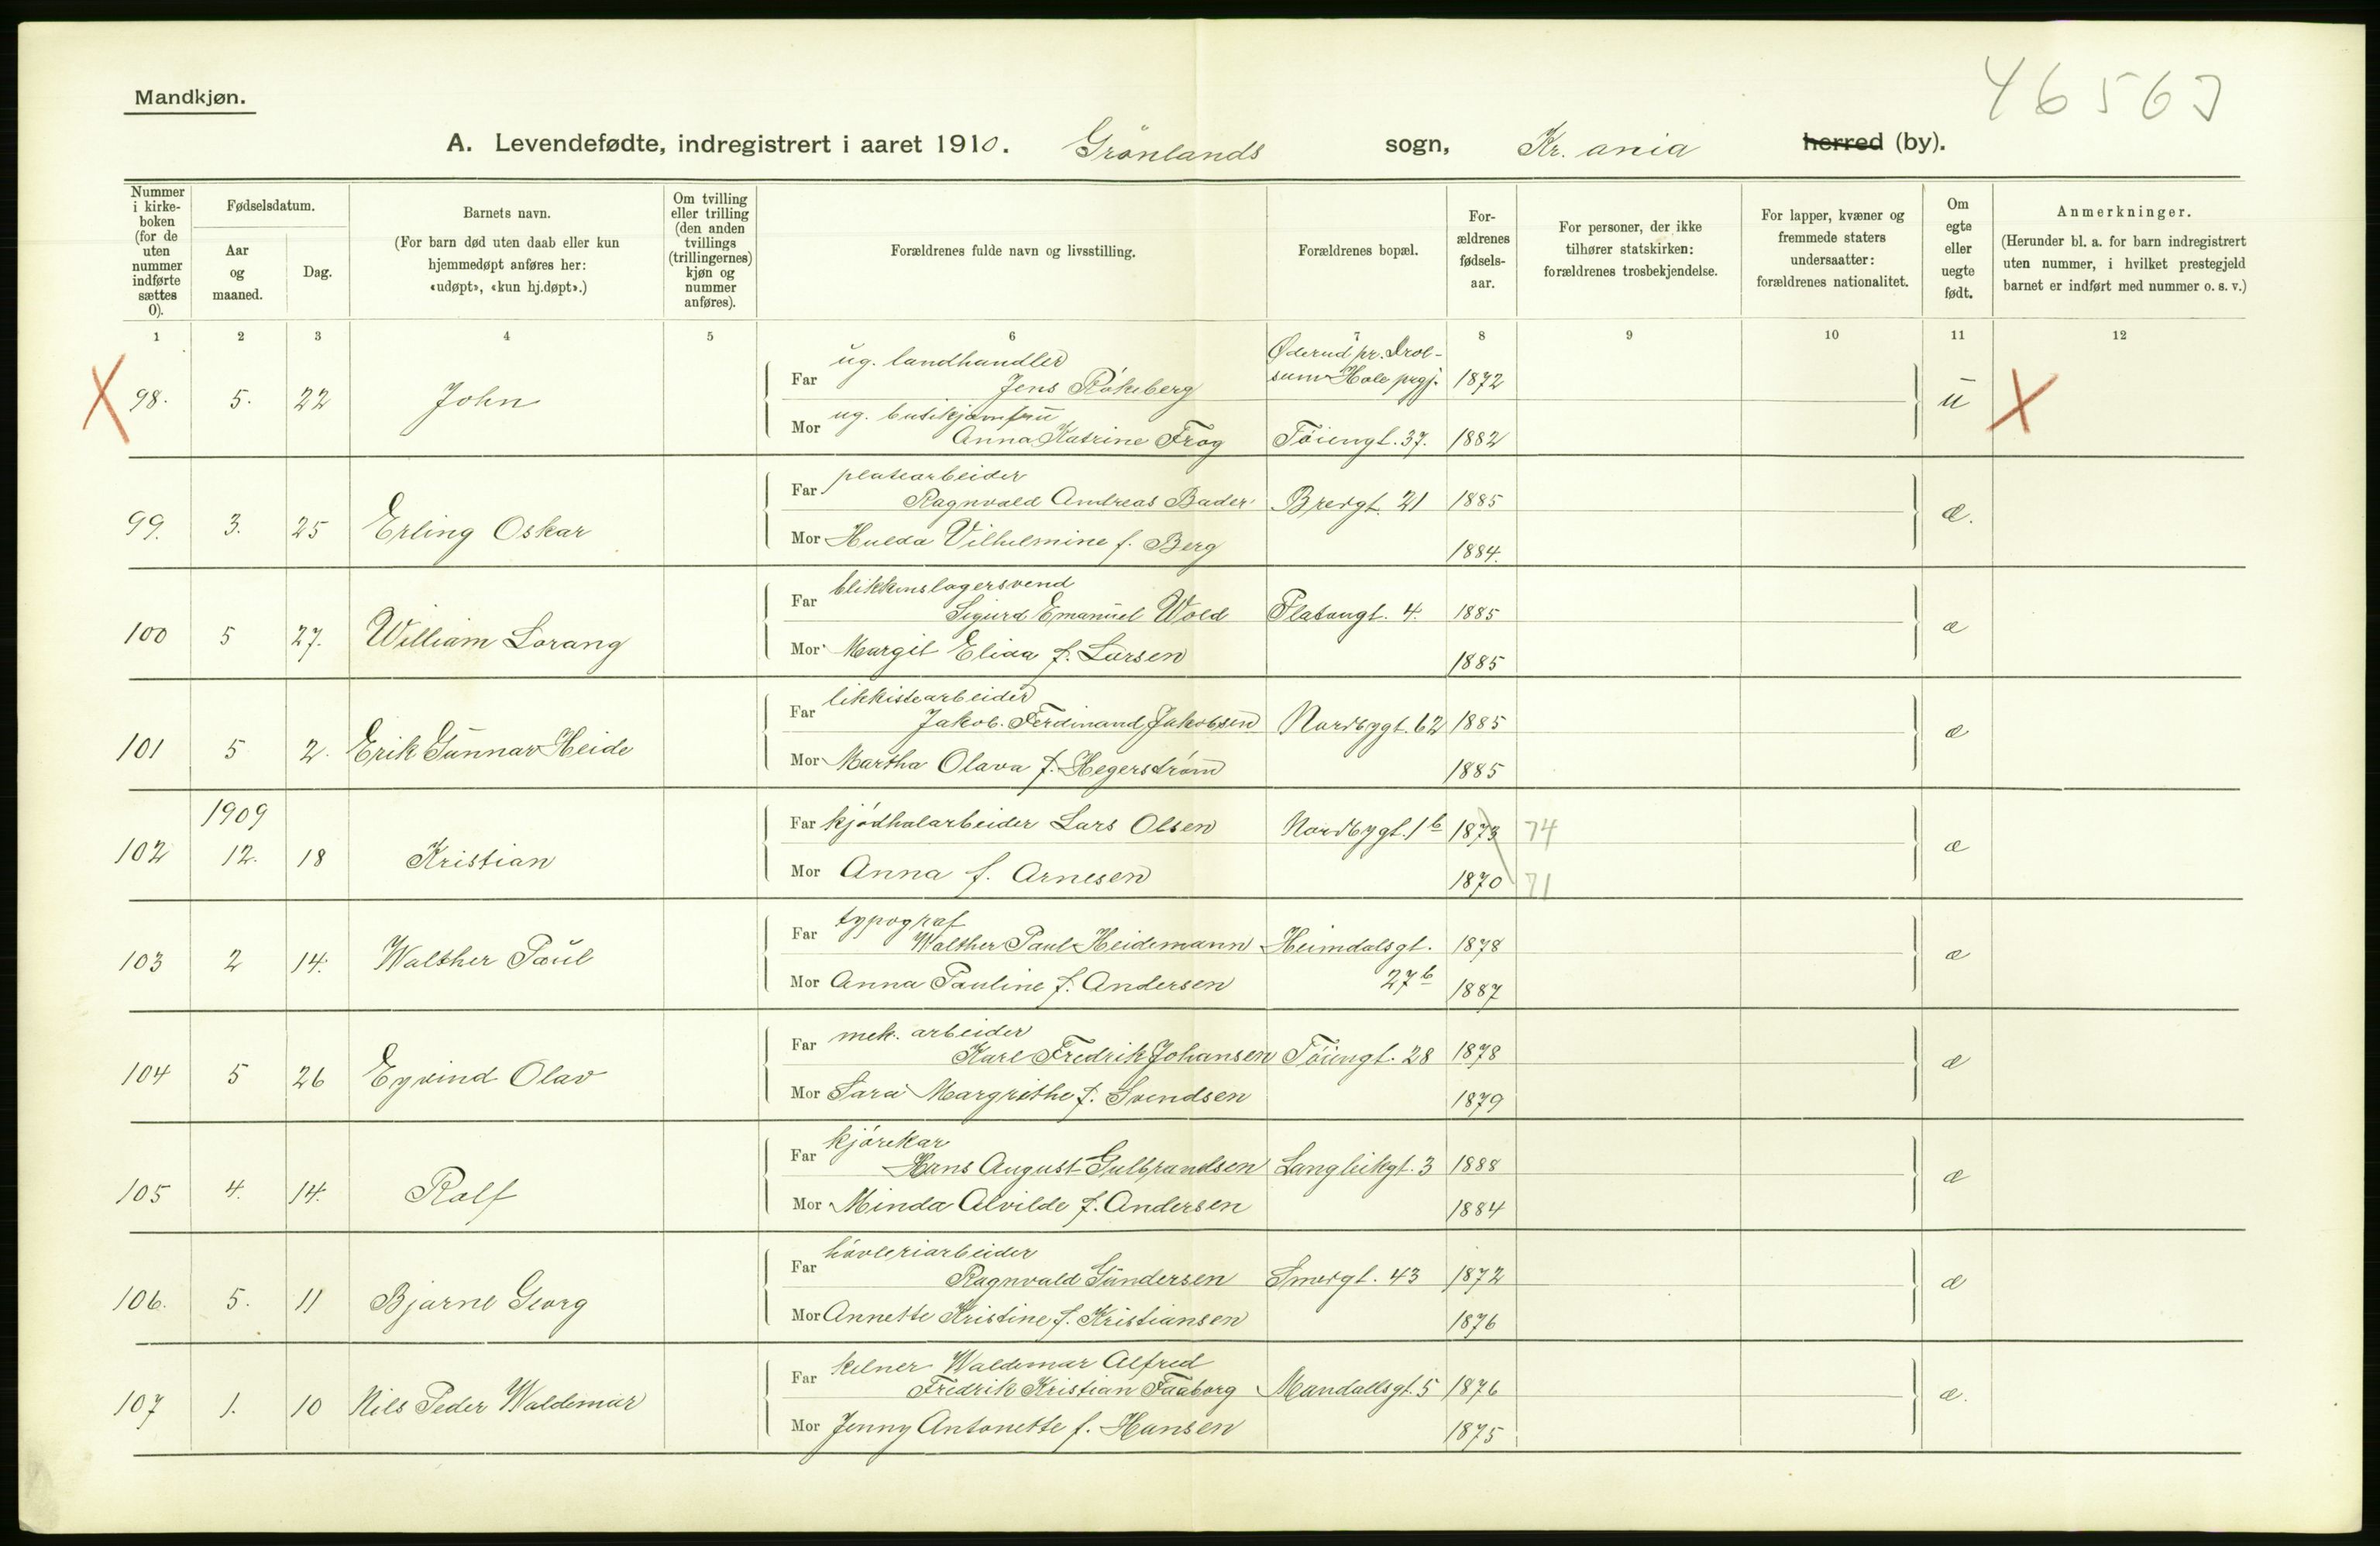 Mandkjøn.
46563
A. Levendefødte, indregistrert i aaret 1910. Grönlands sogn, Kr. ania herred (by).
Nummer i kirke- boken (for de uten nummer indførte sættes 0).
Fødselsdatum.
Aar og maaned.
Dag.
Barnets navn.
(For barn død uten daab eller kun hjemmedøpt anføres her: «udøpt», «kun hj.døpt».)
Om tvilling eller trilling (den anden tvillings (trillingernes) kjøn og nummer anføres).
Forældrenes fulde navn og livsstilling.
Forældrenes bopæl.
For- ældrenes fødsels- aar.
For personer, der ikke tilhører statskirken: forældrenes trosbekjendelse.
For lapper, kvæner og fremmede staters undersaatter: forældrenes nationalitet.
Om egte eller uegte født.
Anmerkninger.
(Herunder bl. a. for barn indregistrert uten nummer, i hvilket prestegjeld barnet er indført med nummer o. s. v.)
1 2 3 4 5 6 7 8 9 10 11 12
X 98. 5. 22 John
Far ug. landhandler
Jens Rökeberg Øderud pr. sum Hole prgj. 1872
Mor ug. butikjomfru
Anna Katrine Frog Töiengt. 37. 1882
u X
99. 3. 25 Erling Oskar
Far platearbeider
Ragnvald Andreas Bader Bredgt. 21 1885
Mor Hulda Vilhelmine f. Berg 1884.
æ.
100 5 27. William Lorang
Far blikkenslagersvend
Sigurd Emanuel Wold Platougt. 4. 1885
Mor Margit Elida f. Larsen 1885
æ
101 5 2. Erik Gunnar Heide
Far likkistearbeider
Jakob Ferdinand Jakobsen Nordbygt. 62 1885
Mor Martha Olava f. Hegerström 1885
æ
102 1909
12. 18 Kristian
Far kjödhalarbeider Lars Olsen Nordbygt. 1 b 1873 74
Mor Anna f. Arnesen 1870 71
æ
103 2 14. Walther Paul
Far typograf
Walther Paul Heidemann Heimdalsgt. 1878
Mor Anna Pauline f. Andersen 27 b 1887
æ
104 5 26 Eyvind Olav
Far mek. arbeider
Karl Fredrik Johansen Töiengt. 28 1878
Mor Sara Margrethe f. Svendsen 1879
æ
105 4. 14. Rolf
Far kjörekar
Hans August Gulbrandsen Langleikgt. 3 1888
Mor Minda Alvilde f. Andersen 1884
æ
106. 5. 11 Bjarne Georg
Far hövleriarbeider
Ragnvald Gundersen Smedgt. 43 1872
Mor Annette Kristine f. Kristiansen 1876
æ
107 1. 10 Nils Peder Waldemar
Far kelner Waldemar Alfred
Fredrik Kristian Faaborg Mandallsgt. 5 1876
Mor Jenny Antonette f. Hansen 1875
æ.